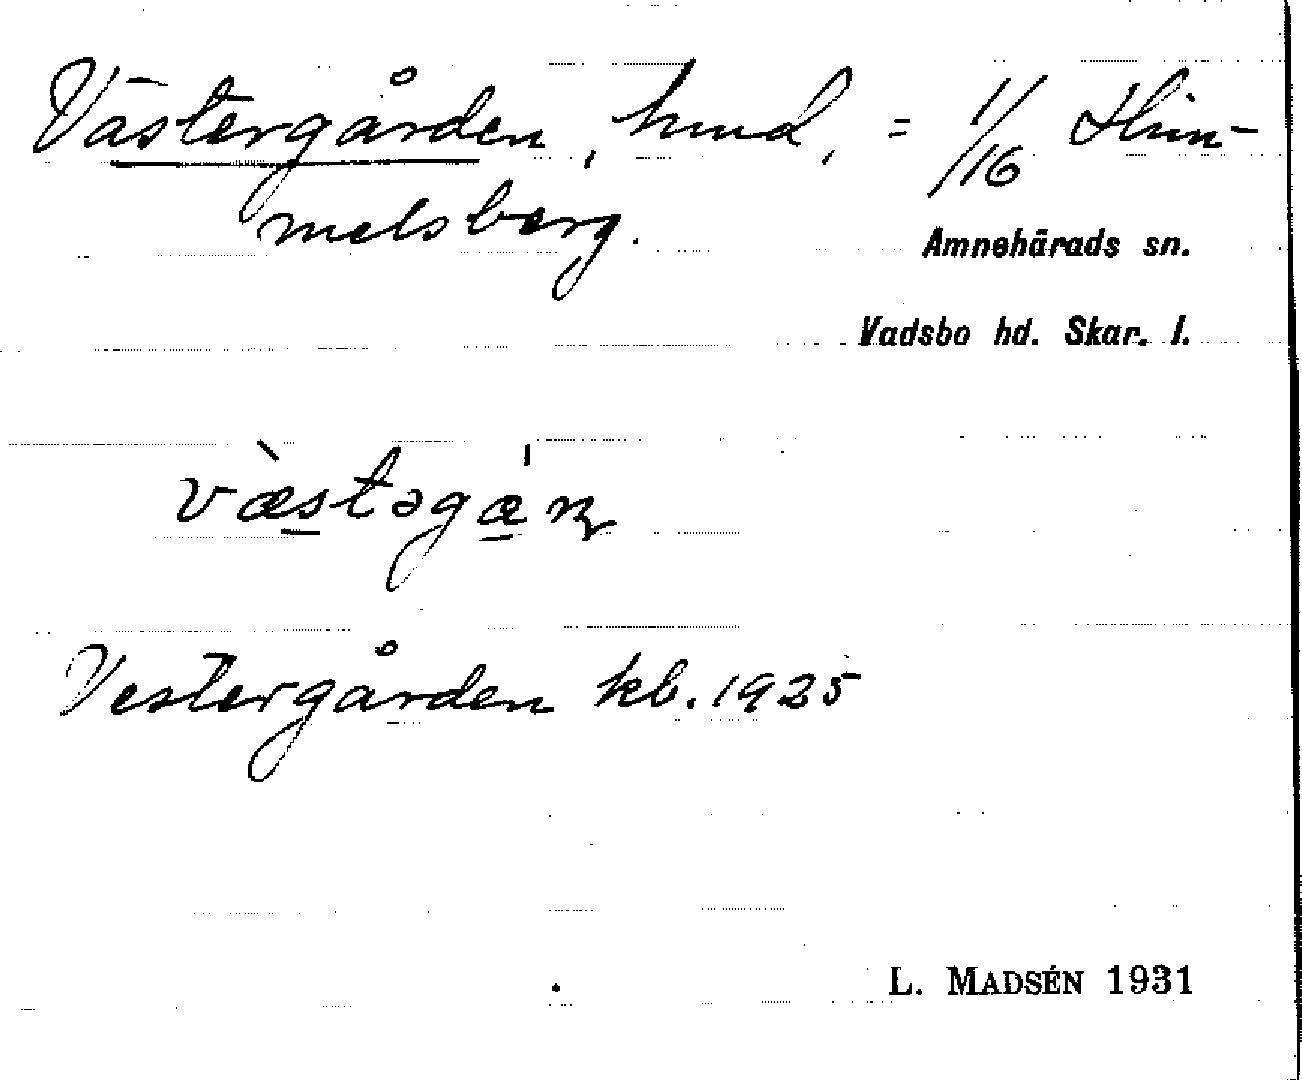 Västergården, hmd, = 1/16 Him-
melsberg.
Amnehärads sn.
Vadsbo hd. Skar. l.
Vestergården kb. 1925
L. MADSÉN 1931